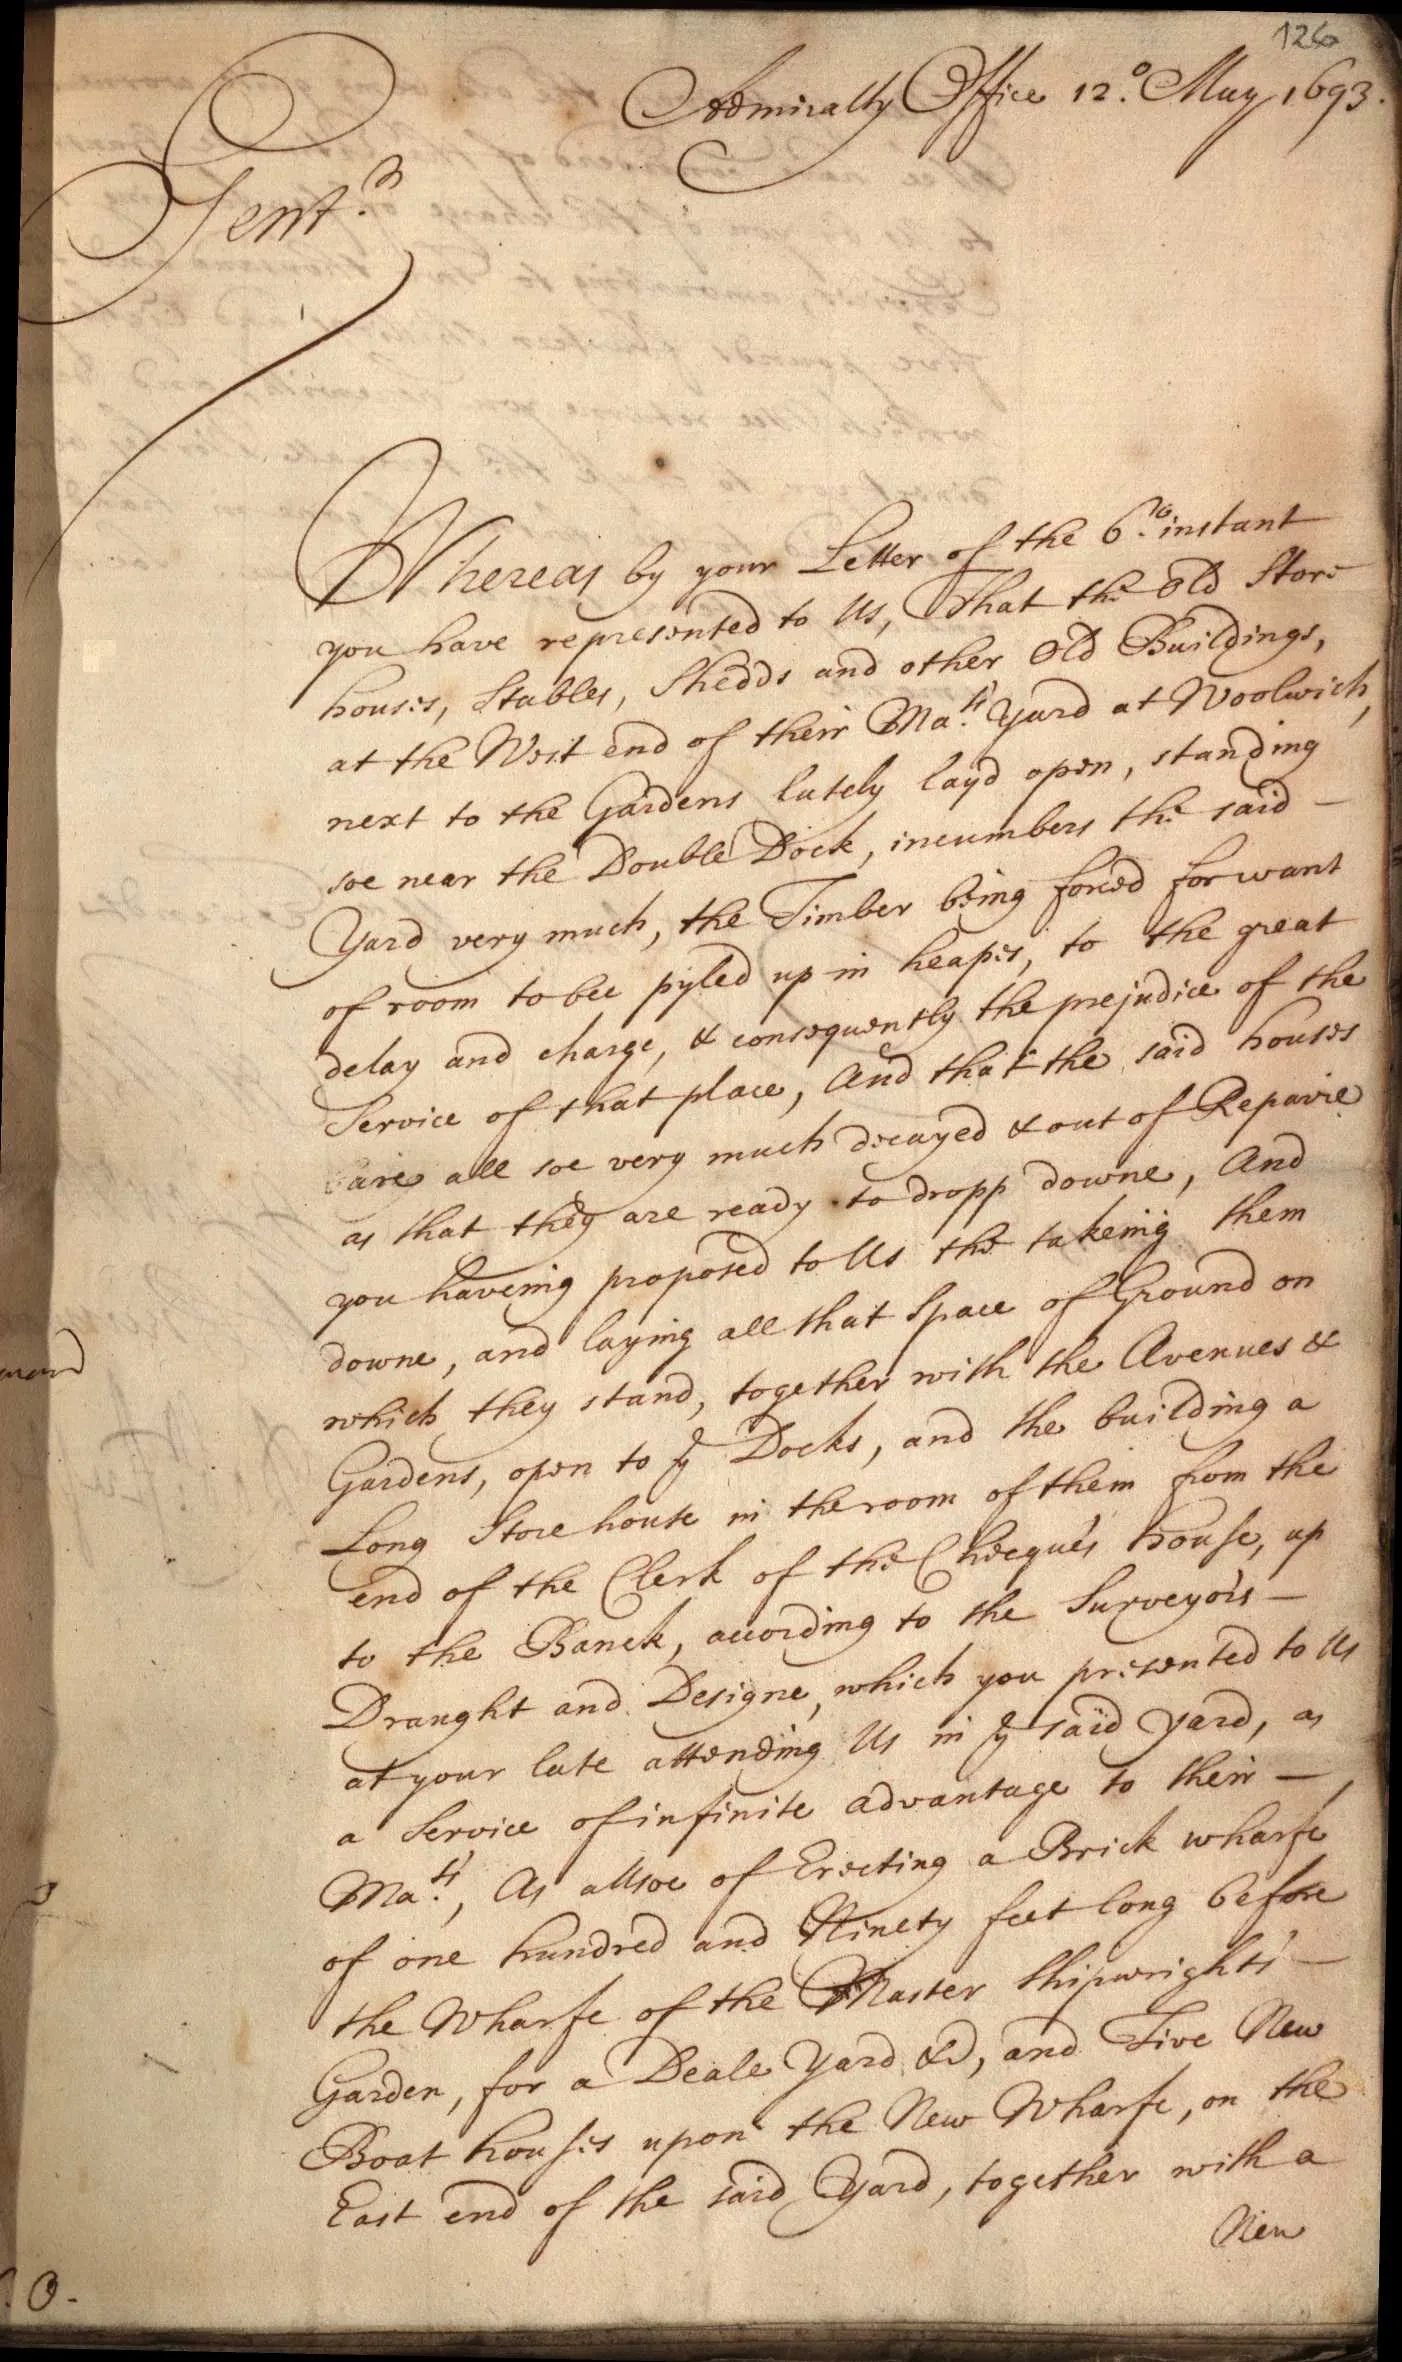 126
Admiralty Office 12.º May 1693.
Gent.n
Whereas by your Letter of the 6.to instant
you have represented to Us, That the Old Store
houses, Stables, Shedds and other Old Buildings,
at the West end of their Ma.ts Yard at Woolwich,
next to the Gardens lately layd open, standing
soe near the Double Dock, incumbers the said –
Yard very much, the Timber being forced for want
of room to bee pyled up in heapes, to the great
delay and charge, & consequently the prejudice of the
Service of that place, And that the said houses
are all soe very much decayed & out of Repaire
as that they are ready to dropp downe, And
you haveing proposed to Us the takeing them
downe, and laying all that Space of Ground on
which they stand, together with the Avenues &
Gardens, open to ye Docks, and the building a
Long Storehouse in the room of them from the
end of the Clerk of the Checque's house, up
to the Banck, according to the Surveyors –
Draught and Designe, which you presented to Us
at your late attending Us in ye said Yard, as
a Service of infinite advantage to their –
Ma.ts, As allsoe of Erecting a Brick wharfe
of one hundred and Ninety feet long before
the Wharfe of the Master Shipwrights' –
Garden, for a Deale Yard &c, and Five New
Boat houses upon the New Wharfe, on the
East end of the said Yard, together with a
New